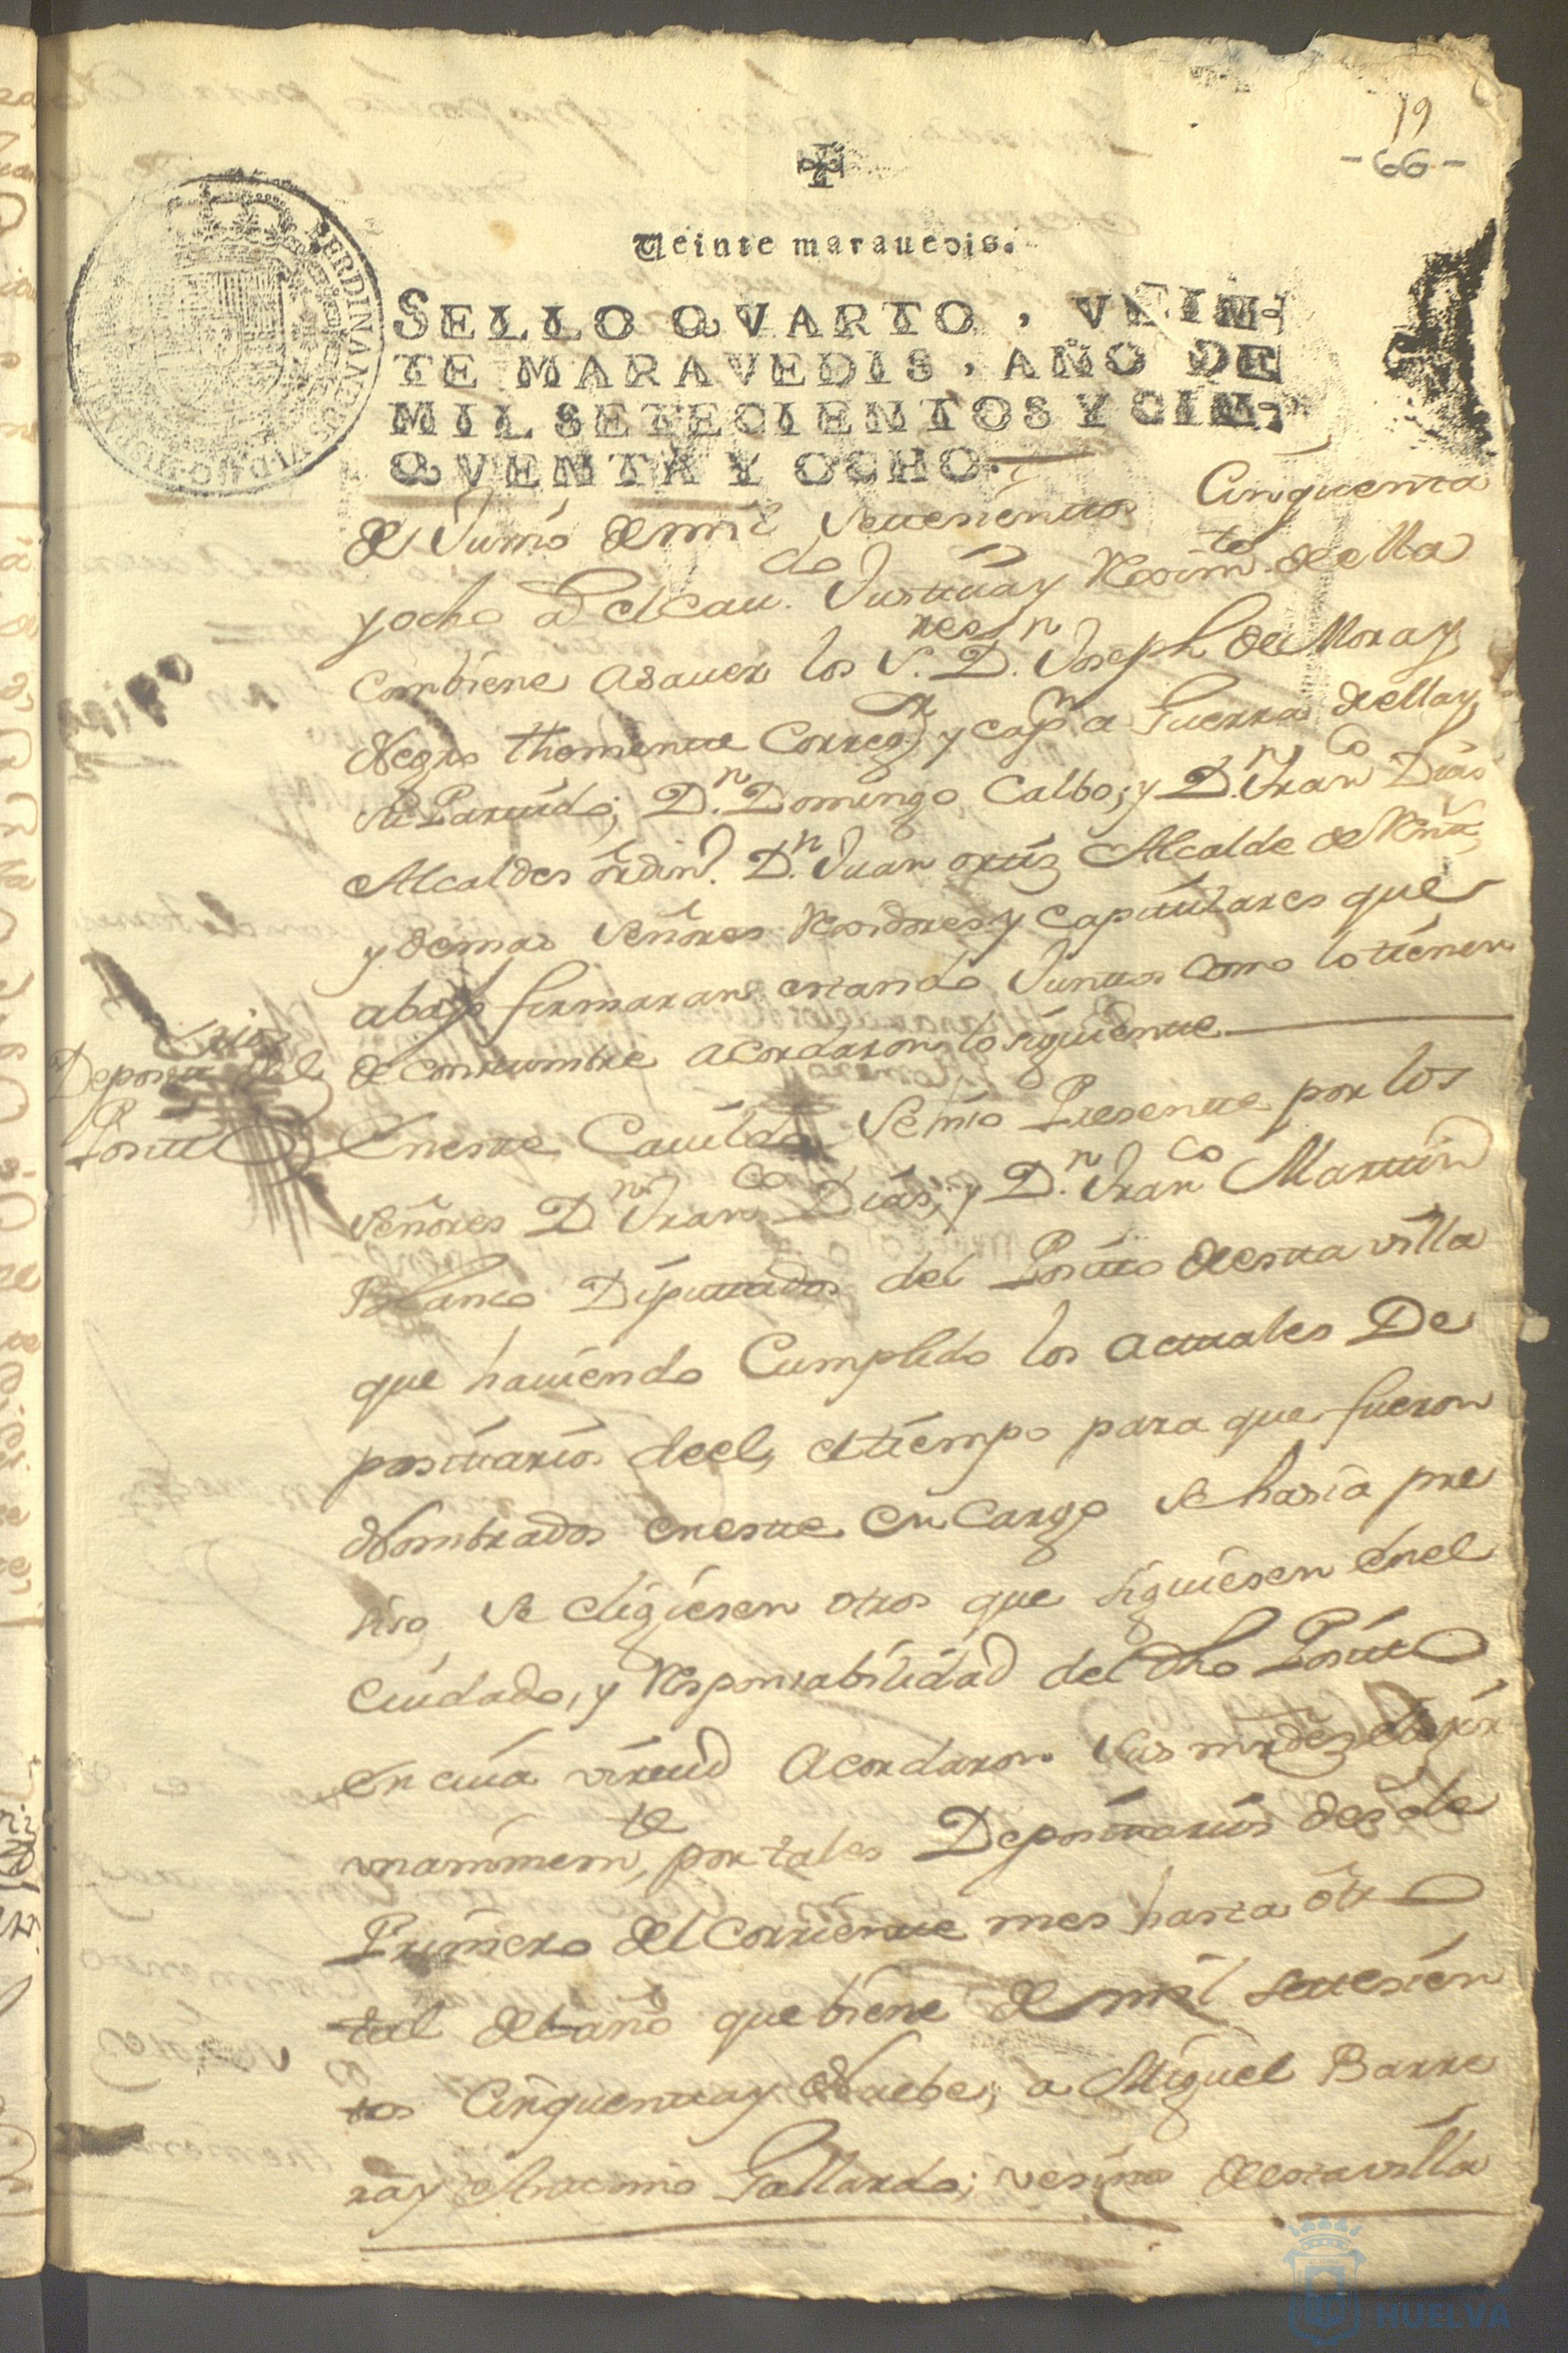 19
-66-
Veinte maravedis.
SELLO QVARTO, VEIN-
TE MARAVEDIS, AÑO DE
MIL SETECIENTOS Y CIN-
QVENTA Y OCHO.
FERDINANDUS VI D G HISPAN
de Junio de mil setesienttos Cinquenta
y ocho el Cau.do Justtiª y Rexim.to de ella
combiene asauer los S.res D.n Joseph de Mora y
Negro thomentte Correg.r y cap.n a Guerra de ella y
su Parttido; D.n Domingo Calbo; y D.n Fran.co Dias
Alcaldes ordin.s D.n Juan orttiz Alcalde de
y demas señores Rexidores y Capittulares que
abajo firmaran estando Junttos como lo tienen
de consttumbre acordaron lo siguientte
Deposittrios del
Positto
En estte Cauildo se hiso Presentte por los
señores D.n Fran.co Dias, y D.n Fran.co Marttin
Blanco Diputtados del Positto de estta villa
que hauiendo Cumplido los acttuales De
posittarios de el, el tiempo para que fueron
Nombrados en estte en Cargo se hasia pre
siso se eligiesen otros que siguiesen en el
Cuidado, y Responsabilidad del dho Positto
en cuia virttud acordaron sus mrdez elejir
unanimem.te por tales Deposittarios desde
Primero del Corrientte mes hasta otro
tal del año que biene de mil settesien
tos Cinquentta y Nuebe; a Miguel Barre
ra y Gallardo; vesinos de esta villa
HUELVA